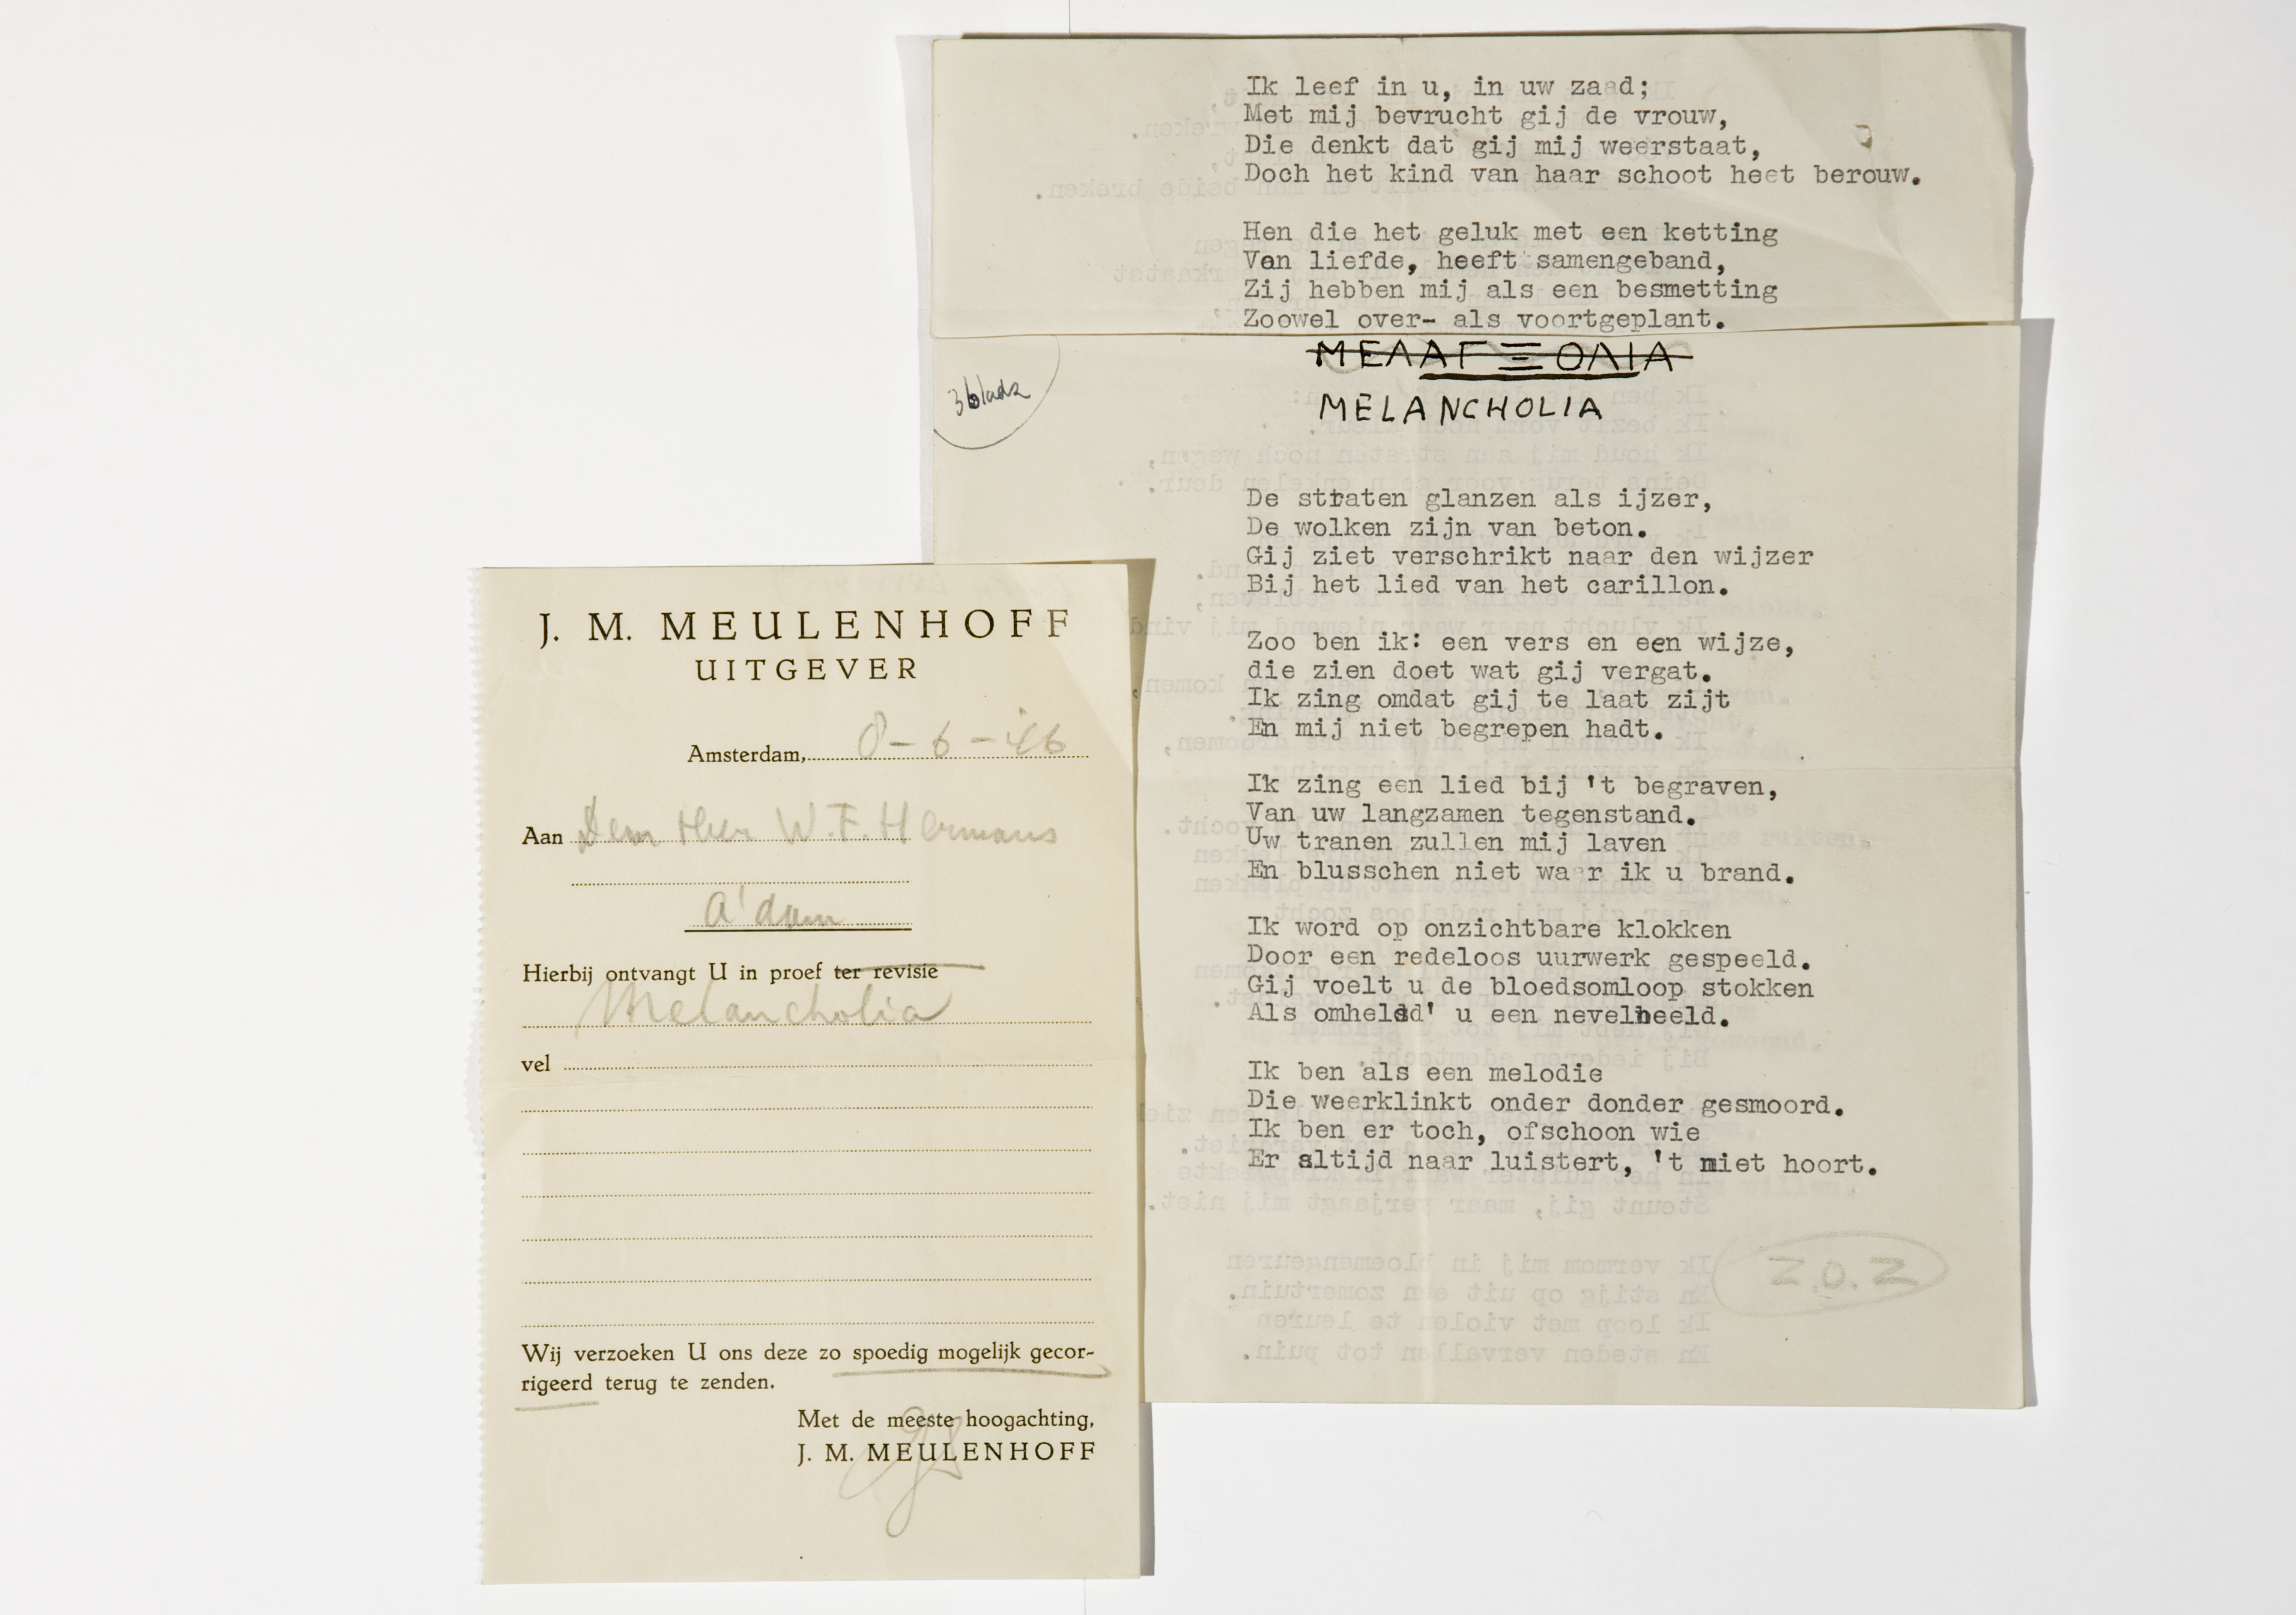 Ik leef in u, in uw zaad;
Met mij bevrucht gij de vrouw,
Die denkt dat gij mij weerstaat,
Doch het kind van haar schoot heet berouw.
Hen die het geluk met een ketting
Van liefde, heeft samengeband,
Zij hebben mij als een besmetting
Zoowel over- als voortgeplant.
ΜΕΛΑΓΞΟΛΙΑ
MELANCHOLIA
3 bladz
De straten glanzen als ijzer,
De wolken zijn van beton.
Gij ziet verschrikt naar den wijzer
Bij het lied van het carillon.
Zoo ben ik: een vers en een wijze,
die zien doet wat gij vergat.
Ik zing omdat gij te laat zijt
En mij niet begrepen hadt.
Ik zing een lied bij 't begraven,
Van uw langzamen tegenstand.
Uw tranen zullen mij laven
En blusschen niet waar ik u brand.
Ik word op onzichtbare klokken
Door een redeloos uurwerk gespeeld.
Gij voelt u de bloedsomloop stokken
Als omhelsd' u een nevelbeeld.
Ik ben als een melodie
Die weerklinkt onder donder gesmoord.
Ik ben er toch, ofschoon wie
Er altijd naar luistert, 't niet hoort.
Z.O.Z
J. M. MEULENHOFF
UITGEVER
Amsterdam, 8-6-'46
Aan Den Heer W.F. Hermans
A'dam
Hierbij ontvangt U in proef ter revisie
Melancholia
vel
Wij verzoeken U ons deze zo spoedig mogelijk gecor-
rigeerd terug te zenden.
Met de meeste hoogachting,
J. M. MEULENHOFF